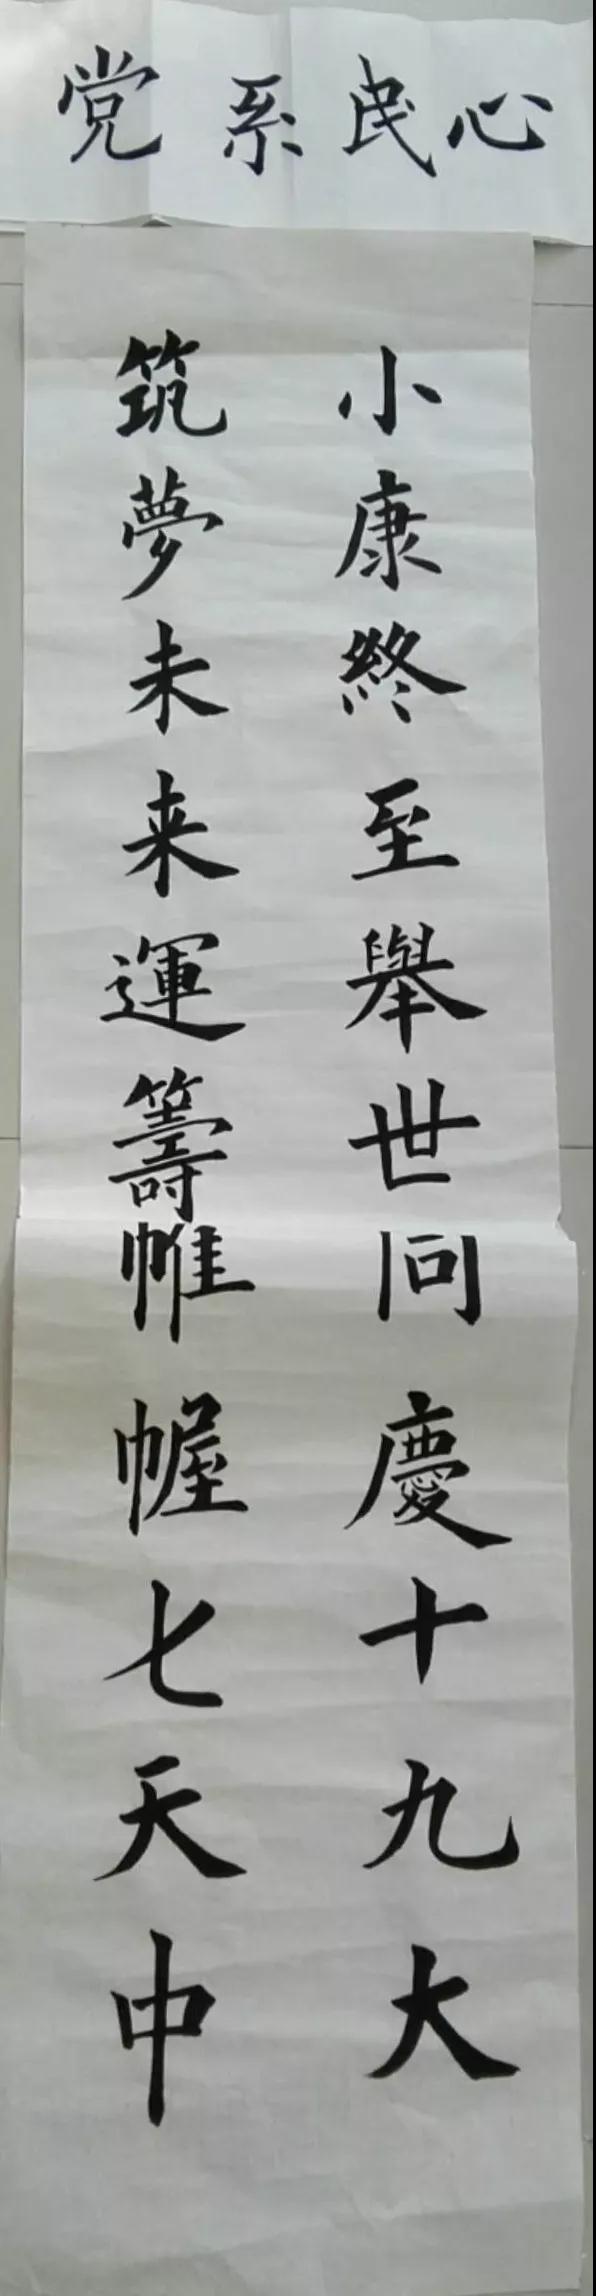 党系民心
小康終至舉世同慶十九大
筑夢未来運籌帷幄七天中